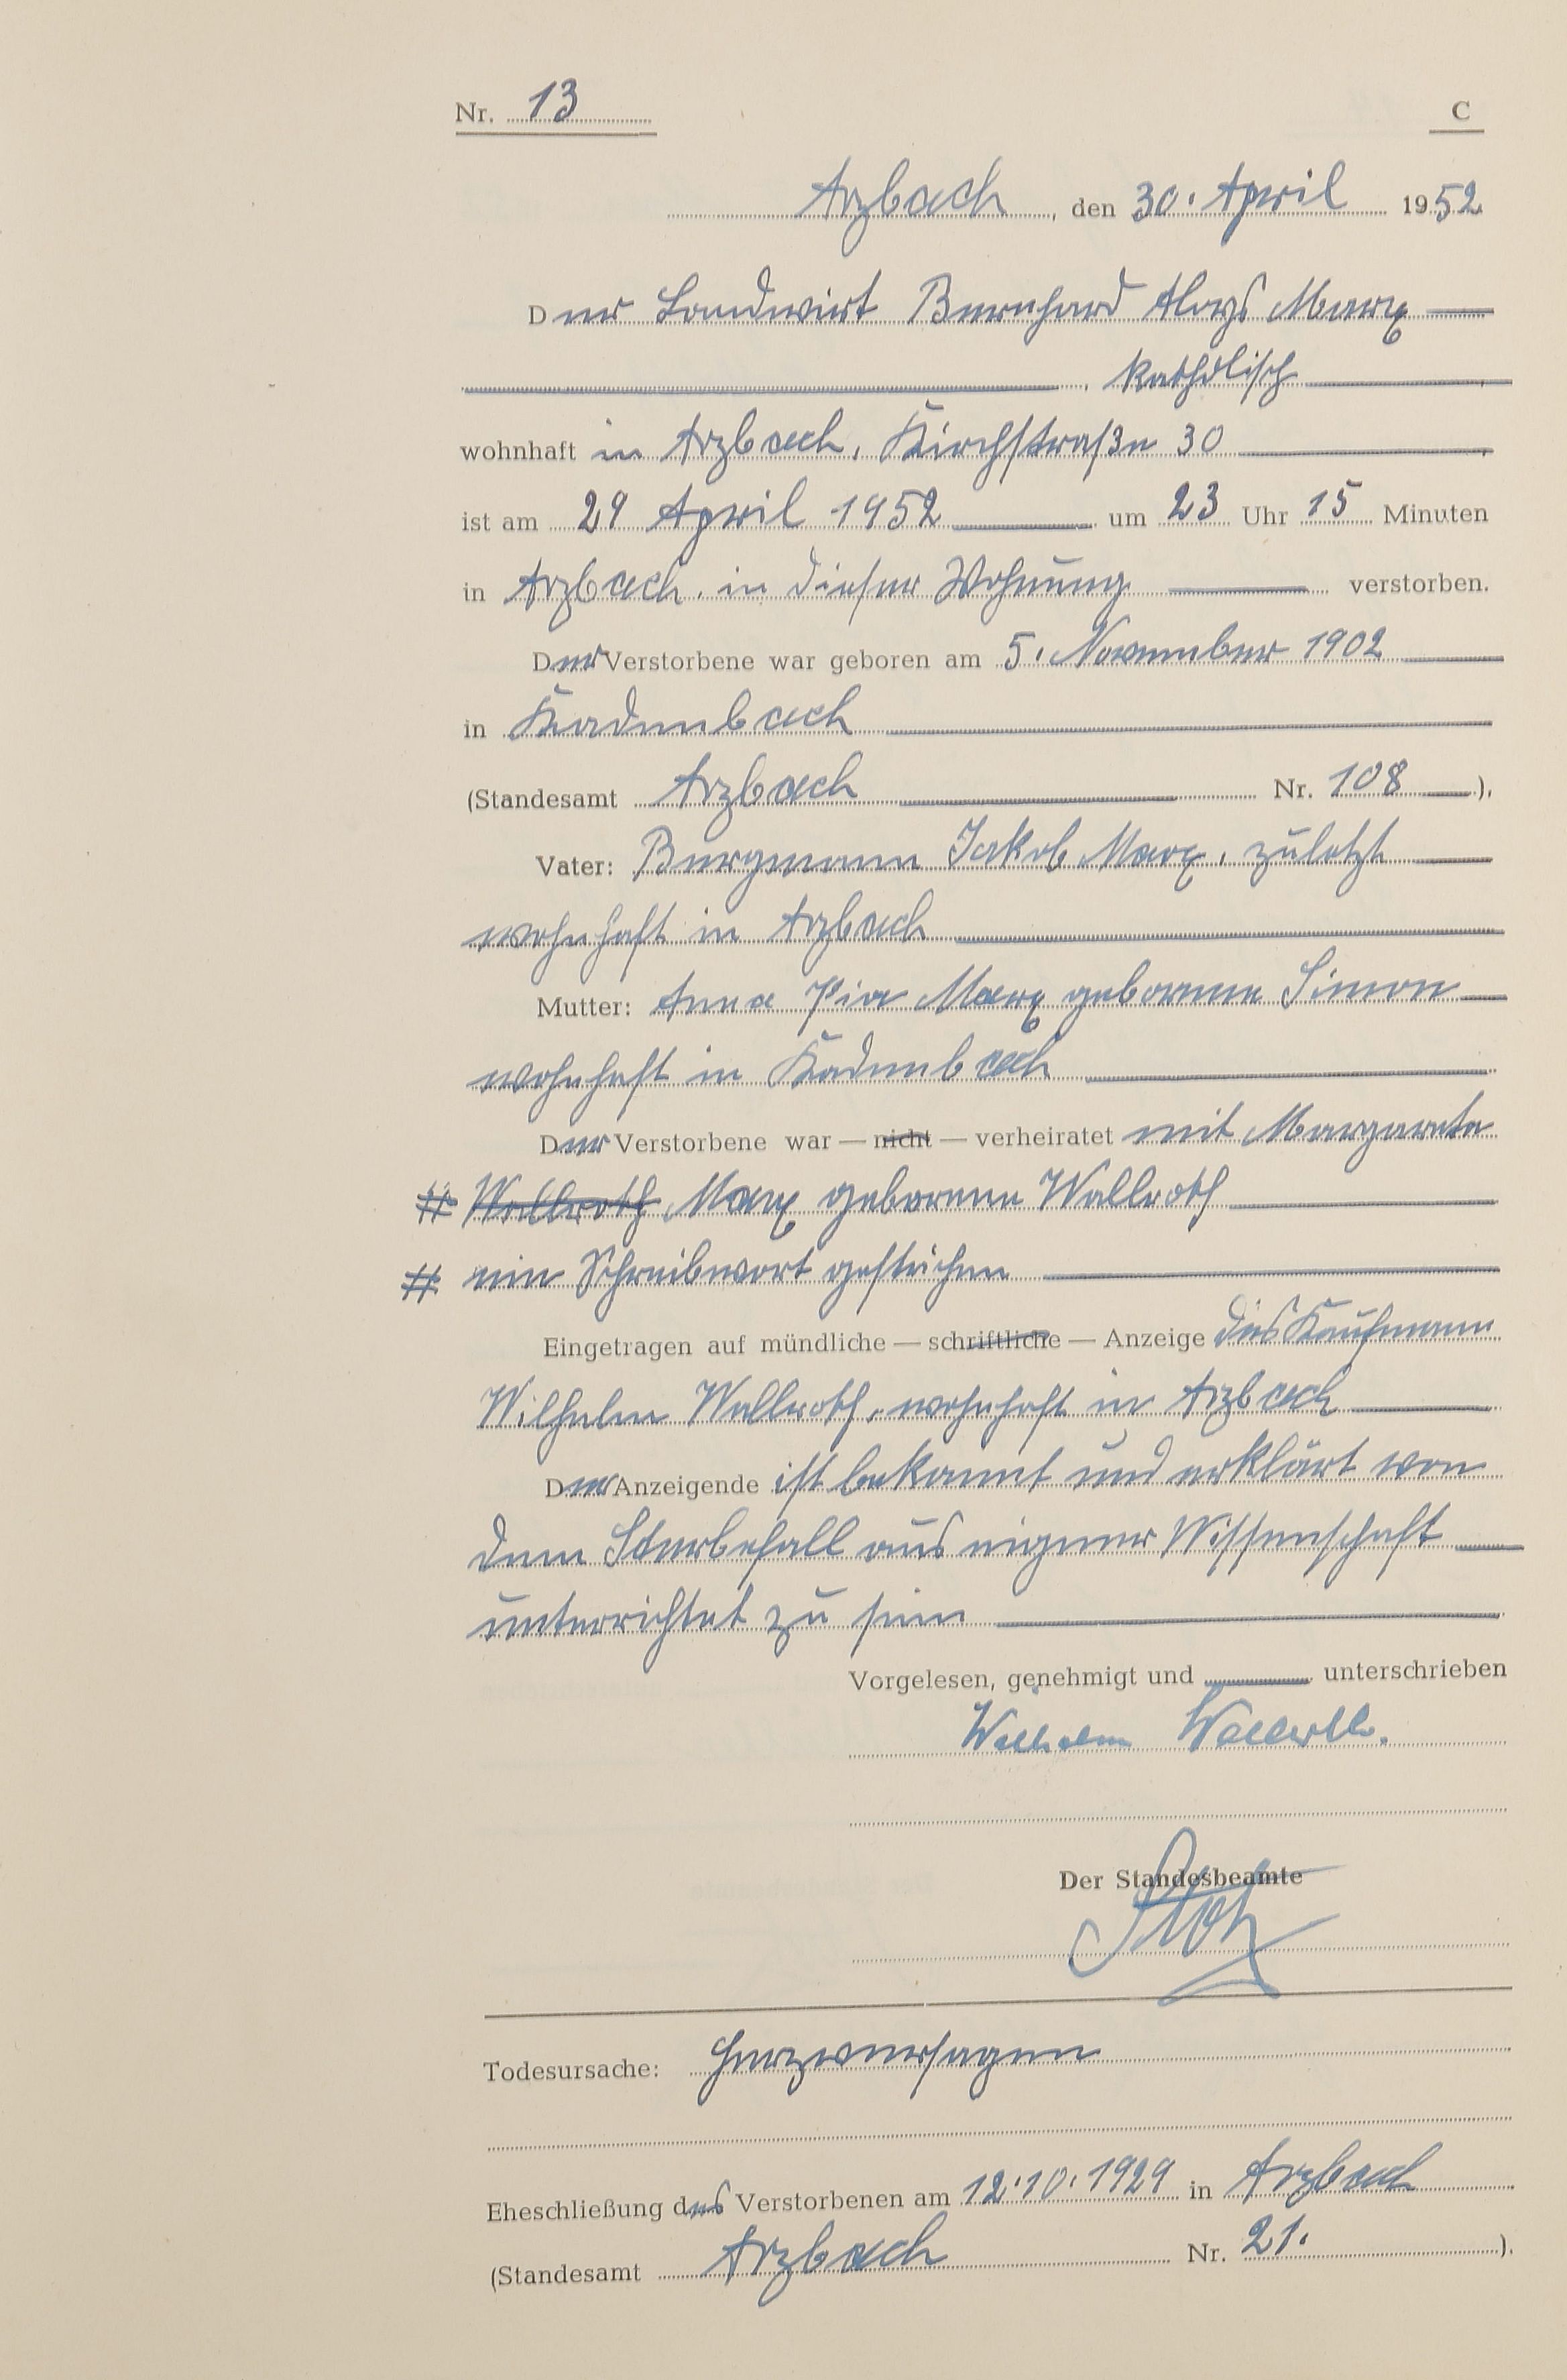 Nr. 13 C
Arzbach, den 30. April 1952
Der Landwirt Bernhard Aloys Marx
, katholisch
wohnhaft in Arzbach, Kirchstraße 30
ist am 29 April 1952 um 23 Uhr 15 Minuten
in Arzbach, in dieser Wohnung verstorben.
Der Verstorbene war geboren am 5. November 1902
in Kadenbach
(Standesamt Arzbach Nr. 108).
Vater: Bergmann Jakob Marx, zuletzt
wohnhaft in Arzbach
Mutter: Anna Pia Marx geborene Simon
wohnhaft in Kadenbach
Der Verstorbene war — nicht — verheiratet mit Margareta
# Wallroth Marx geborene Wallroth
# ein Schreibwort gestrichen
Eingetragen auf mündliche — schriftliche — Anzeige des Kaufmann
Wilhelm Wallroth, wohnhaft in Arzbach
Der Anzeigende ist bekannt und erklärt von
dem Sterbefall aus eigener Wissenschaft
unterrichtet zu sein
Vorgelesen, genehmigt und unterschrieben
Wilhelm Wallroth.
Der Standesbeamte
Todesursache: Herzversagen
Eheschließung des Verstorbenen am 12.10.1929 in Arzbach
(Standesamt Arzbach Nr. 21.).